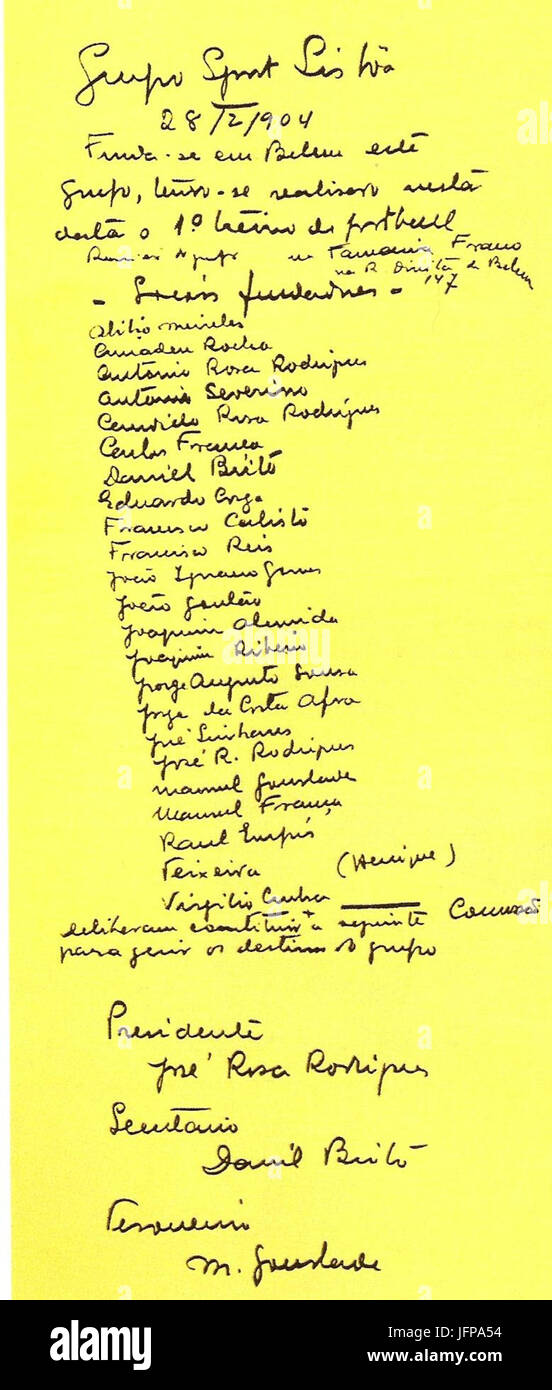 Grupo Sport Lisbôa
28/2/904
Funda-se em Belem este
grupo, tendo-se realisado nesta
data o 1º treino de football
na Farmacia Franco
na R. Direita de Belem
147
- Socios fundadores -
Abilio Meireles
Amadeu Rocha
Antonio Rosa Rodrigues
Antonio Severino
Candido Rosa Rodrigues
Carlos França
Daniel Brito
Eduardo Corga
Francisco Calisto
Francisco Reis
João Ignacio Gomes
João Goulão
Joaquim Almeida
Joaquim Ribeiro
Jorge Augusto Sousa
Jorge da Costa Afra
José Linhares
José R. Rodrigues
Manuel Gourlade
Manuel França
Raul Empis
Teixeira (Henrique)
Virgilio Cunha
deliberam constituir a seguinte Comissão
para gerir os destinos do grupo
Presidente
José Rosa Rodrigues
Secretario
Daniel Brito
Tesoureiro
M. Gourlade
alamy
alamy stock photo
JFPA54
www.alamy.com